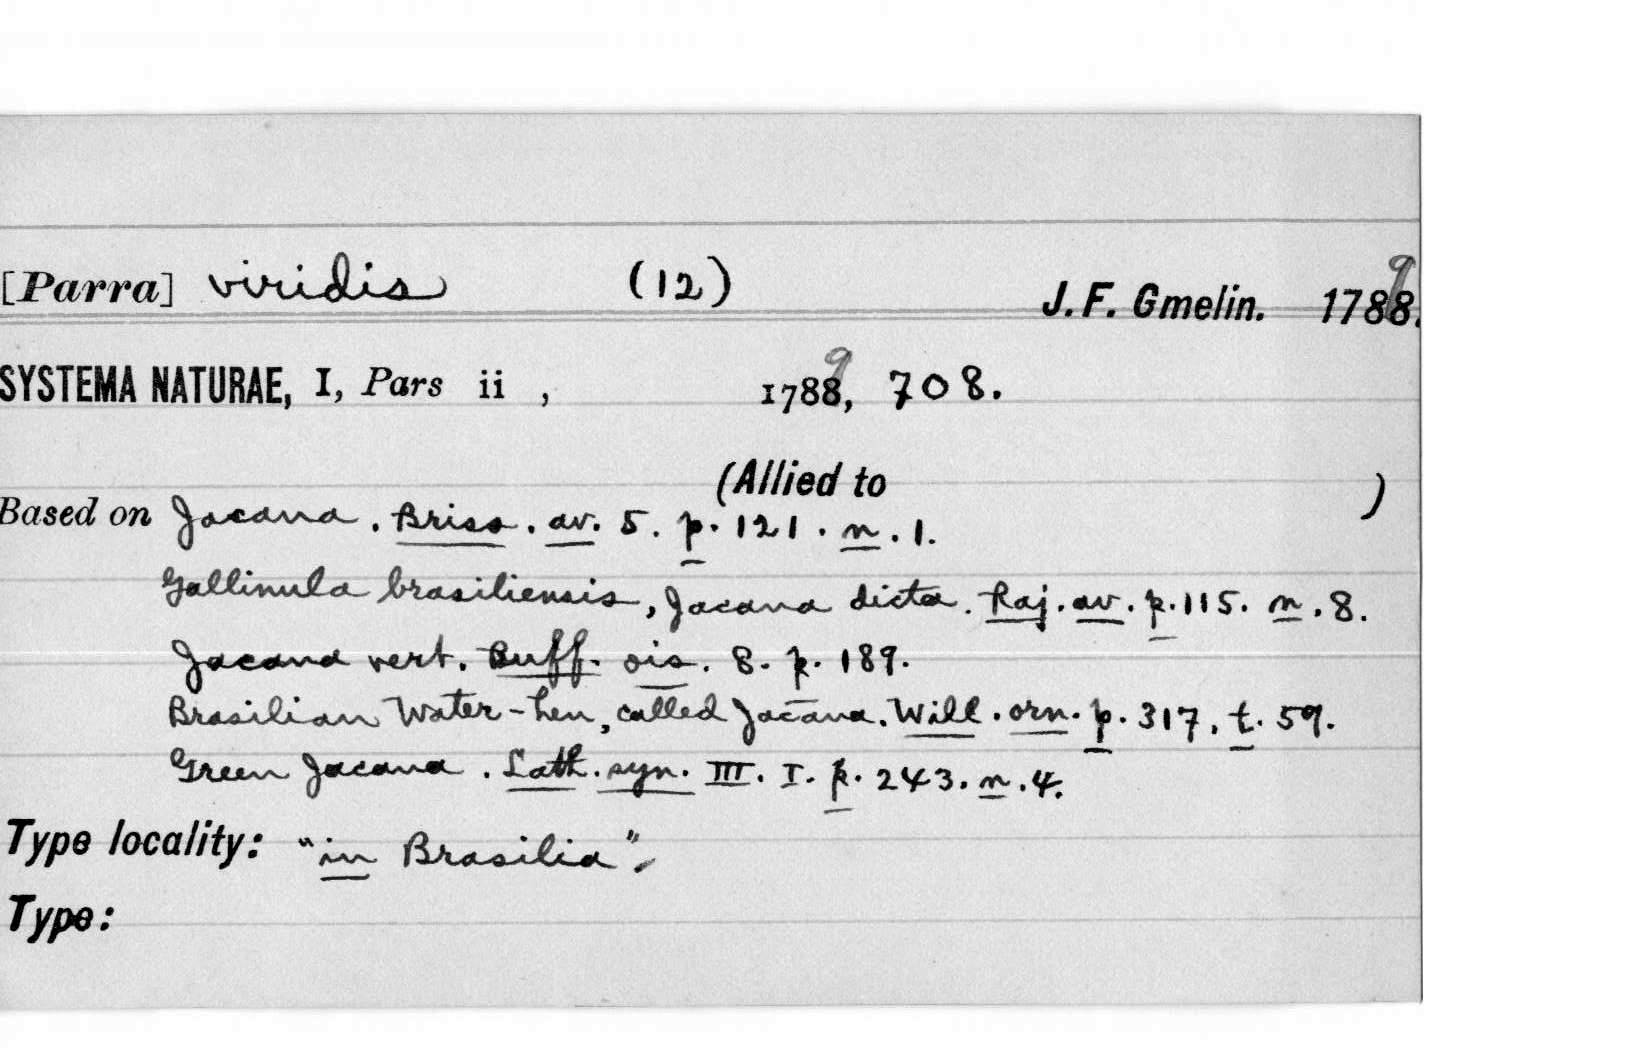 [Parra] viridis (12) J. F. Gmelin. 1788. 9
SYSTEMA NATURAE, I, Pars ii , 1788, 9 708.
(Allied to )
Based on Jacana. Briss. av. 5. p. 121. n. 1.
Gallinula brasiliensis, Jacana dicta. Raj. av. p. 115. n. 8.
Jacana vert. Buff. ois. 8. p. 189.
Brasilian Water-hen, called Jacana. Will. orn. p. 317. t. 59.
Green Jacana. Lath. syn. III. I. p. 243. n. 4.
Type locality: "in Brasilia".
Type: